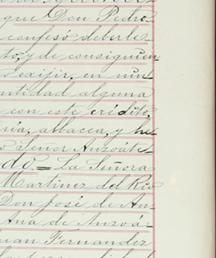 que Don Pedro
confesó deberle
to, y de consiguien
exijir, en nin
antidad alguna
con este crédito,
ria, albacea, y he
Señor Anzoáte
do = La Señora
Martinez del Rio
Don José de An
Ana de Anzoá
uan Fernandez